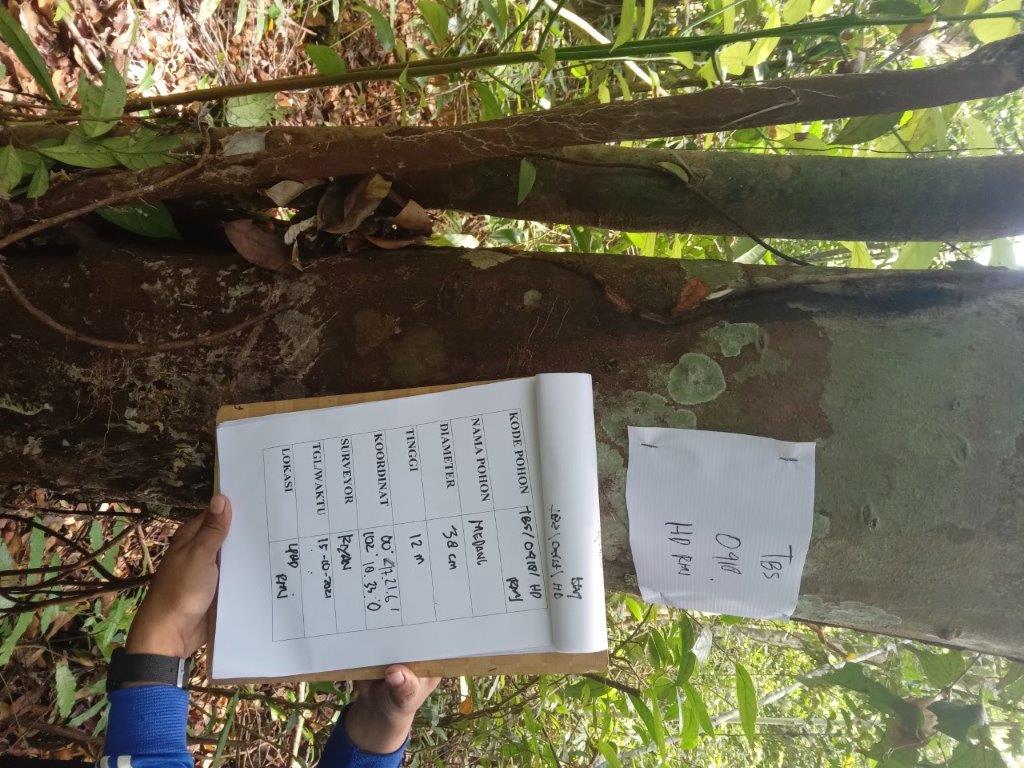 TBS
0918.
HD RMJ
KODE POHON TBS/0918/HD
RMJ
NAMA POHON MEDANG
DIAMETER 38 cm
TINGGI 12 m
KOORDINAT
102. 18. 33.0
SURVEYOR Riyan
TGL/WAKTU 15-10-2020
LOKASI LPHD RMJ